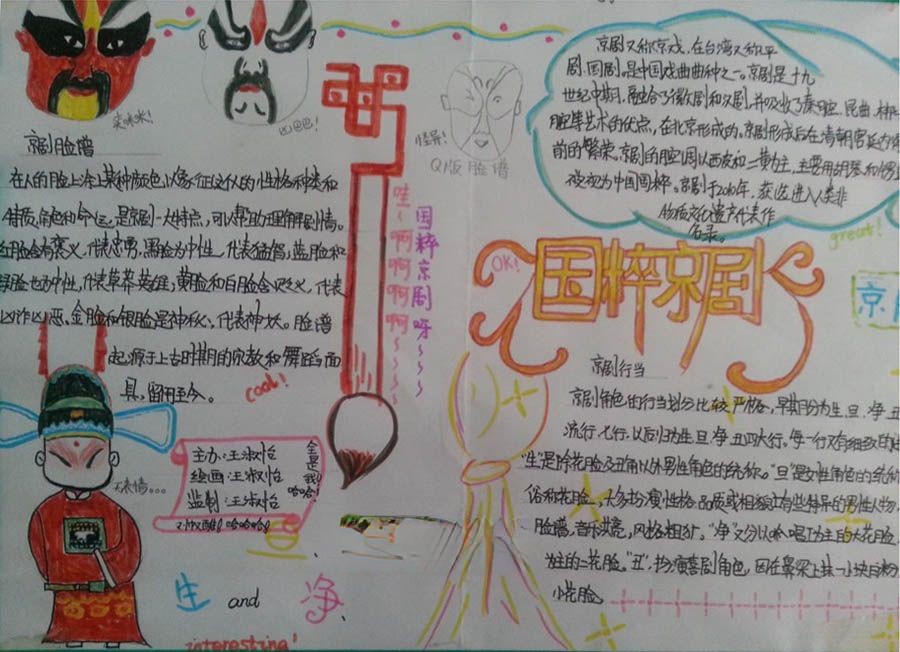 卖咪咪!
巴巴巴!
京剧脸谱
在人的脸上涂上某种颜色以象征这个人的性格和种类和
特质,角色和命运,是京剧一大特点,可以帮助理解剧情。
红脸含有褒义,代表忠勇,黑脸为中性,代表猛智,蓝脸和
绿脸也为中性,代表草莽英雄,黄脸和白脸含贬义,代表
凶诈凶恶,金脸和银脸是神秘,代表神妖。脸谱
起源于上古时期的宗教和舞蹈面
具,留用至今。
cool!
主办:王淑怡
绘画:王淑怡
监制:王淑怡
全是我!
哈哈!
哈哈哈!
无表情...
生 and 净
interesting!
国粹京剧呀~~~~
哇~啊啊啊啊~~~~
怪异!
Q版脸谱
京剧又称京戏,在台湾又称平
剧、国剧。是中国戏曲曲种之一。京剧是十九
世纪中期,融合了徽剧和汉剧,并吸收了秦腔、昆曲、梆
腔等艺术的优点,在北京形成的。京剧形成后在清朝宫廷内
前的繁荣。京剧的腔调以西皮和二黄为主,主要用胡琴和
被视为中国国粹。京剧于2010年,获选进入人类非
物质文化遗产代表作
名录。
great!
OK!
国粹京剧
京
京剧行当
京剧角色的行当划分比较严格,早期分为生、旦、净、丑
流行、七行,以后归为生、旦、净、丑四大行,每一行又有细致的
“生”是除花脸及丑角以外男性角色的统称。“旦”是女性角色的统称
俗称花脸,大多扮演性格、品质或相貌上有些特异的男性人物
脸谱,音乐洪亮,风格粗犷。“净”又分以唸唱工为主的大花脸
为主的二花脸。“丑”,扮演喜剧角色,因在鼻梁上抹一小块白粉
小花脸